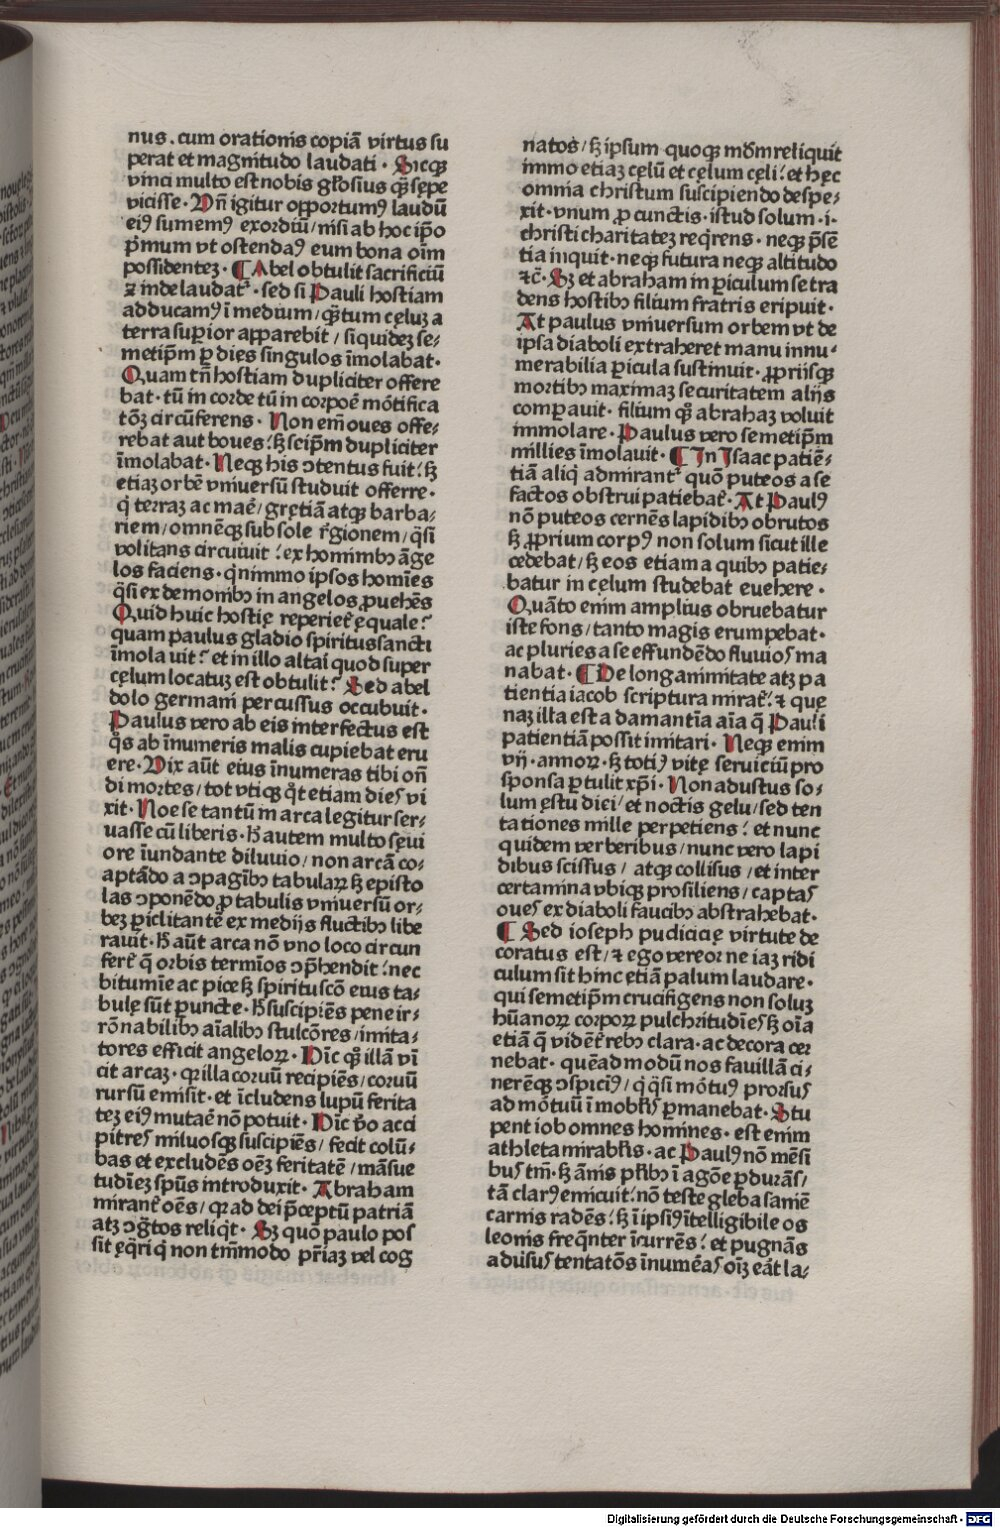 nus. cum orationis copiā virtus su
perat et magnitudo laudati. Sicqꝫ
vinci multo est nobis gl'osius qm̄ sępe
vicisse. Vn̄ igitur opportumꝰ laudū
eiꝰ sumemꝰ exordiū/ nisi ab hoc ip̄o
pͥmum vt ostendaꝰ eum bona oīm
possidentez. ¶ Abel obtulit sacrificiū
⁊ inde laudatᷣ. sed si Pauli hostiam
adducamꝰ ī medium/ qȝtum cęluz a
terra suꝑior apparebit/ siquidez se⸗
metip̄m ꝑ dies singulos īmolabat.
Quam tn̄ hostiam dupliciter offere
bat. tū in corde tū in corpoē mōtifica
tōꝫ circūferens. Non em̄ oues offe⸗
rebat aut boues: sꝫ seip̄m dupliciter
īmolabat. Neqꝫ his ↄtentus fuit: sꝫ
etiaz orbē vniuersū studuit offerre.
qͥ terraz ac maē/ gręciā atqꝫ barba⸗
riem/ omnēqꝫ sub sole rᷣgionem/ qͣsi
volitans circuiuit: ex hominibꝫ āge
los faciens. qͥnimmo ipsos homīes
qͣsi ex demoībꝫ in angelos ꝓuehēs
Quid huic hostię reperiet̄ ęquale?
quam paulus gladio spiritussancti
īmolauit? et in illo altaī quod super
cęlum locatuz est obtulit? Sed abel
dolo germani percussus occubuit.
Paulus vero ab eis interfectus est
qͦs ab īnumeris malis cupiebat eru
ere. Vix aūt eius īnumeras tibi on̄
di mortes/ tot vtiqꝫ qͦt etiam dies vi
xit. Noe se tantū in arca legitur ser⸗
uasse cū liberis. Hͦ autem multo sęui
ore īundante diluuio/ non arcā co⸗
aptādo a ↄpagībꝫ tabulaꝝ sꝫ episto
las ↄponēdo ꝓ tabulis vniuersū or⸗
bez ꝑiclitantē ex medijs fluctibꝫ libe
rauit. Hͦ aūt arca nō vno loco circun
fert̄ q̄ orbis termīos ↄp̄hendit: nec
bitumīe ac pice sꝫ spirituscō eius ta⸗
bulę sūt ꝑuncte. Hͦ suscipiēs pene ir⸗
rōnabilibꝫ aīalibꝫ stulcōres/ imita⸗
tores efficit angeloꝝ. Nīc qm̄ illā vī
cit arcaz. qꝛ illa coruū recipiēs/ coruū
rursū emisit. et īcludens lupū ferita
tez eiꝰ mutaē nō potuit. Nīc vͦo acci
pitres miluosqꝫ suscipiēs/ fecit colū⸗
bas et excludēs oēz feritatē/ māsue
tudīez spūs introduxit. Abraham
mirant̄ oēs/ qꝛ ad dei p̄ceptū patriā
atqꝫ ↄgͣtos reliqͥt. Sꝫ quō paulo pos
sit ęqͣri qͥ non tm̄modo pr̄iaz vel cog
natos/ sꝫ ipsum quoqꝫ mūdm reliquit
immo etiaz cęlū et cęlum cęli: et hęc
omnia christum suscipiendo despe⸗
xit. vnum ꝓ cunctis. istud solum .i.
christi charitatez reqͥrens. neqꝫ p̄sē
tia inquit. neqꝫ futura neqꝫ altitudo
⁊c̄. Sꝫ et abraham in ꝑiculum se tra
dens hostibꝫ filium fratris eripuit.
At paulus vniuersum orbem vt de
ipsa diaboli extraheret manu innu⸗
merabilia ꝑicula sustinuit. ꝓprijsqꝫ
mortibꝫ maximaz securitatem alijs
comꝑauit. filium qm̄ abrahaz voluit
immolare. Paulus vero semetip̄m
millies īmolauit. ¶ In Isaac patiē⸗
tiā aliqͥ admirantᷣ quō puteos a se
factos obstrui patiebat̄. At Paulꝰ
nō puteos cernēs lapidibꝫ obrutos
sꝫ ꝓprium corpꝰ non solum sicut ille
cedebat/ sꝫ eos etiam a quibꝫ patie⸗
batur in cęlum studebat euehere.
Quāto enim amplius obruebatur
iste fons/ tanto magis erumpebat.
ac pluries a se effundēdo fluuios ma
nabat. ¶ De longanimitate atqꝫ pa
tientia iacob scriptura mirat̄: ⁊ quę
naz illa est adamantīa aīa q̄ Pauli
patientiā possit imitari. Neqꝫ enim
vij. annoꝝ. sꝫ totiꝰ vitę seruiciū pro
sponsa ꝑtulit xp̄i. Non adustus so⸗
lum ęstu diei/ et noctis gelu/ sed ten
tationes mille perpetiens: et nunc
quidem verberibus/ nunc vero lapi
dibus scissus/ atqꝫ collisus/ et inter
certamina vbiqꝫ prosiliens/ captas
oues ex diaboli faucibꝫ abstrahebat.
¶ Sed ioseph pudicicię virtute de
coratus est/ ⁊ ego vereor ne iaz ridi
culum sit hinc etiā palum laudare.
qui semetip̄m crucifigens non soluz
hūanoꝝ corpoꝝ pulchritudīes sꝫ oīa
etiā q̄ vident̄ rebꝫ clara. ac decora cer
nebat. quēadmodū nos fauillā ci⸗
nerēqꝫ ↄspicimꝰ/ qͥ qͣsi mōtuꝰ prorsus
ad mōtuū imobilis ꝑmanebat. Stu
pent iob omnes homines. est enim
athleta mirabilis. ac Paulꝰ nō mēsi
bus tm̄. sꝫ ānis plībꝫ ī agōe ꝑdurās/
tā clarꝰ emicuit: nō teste gleba saniē
carnis radēs: sꝫ ī ipsiꝰ ītelligibile os
leonis freqͣnter īcurrēs: et pugnās
aduisus tentatōs īnumēas oīz eāt la⸗
Digitalisierung gefördert durch die Deutsche Forschungsgemeinschaft - DFG